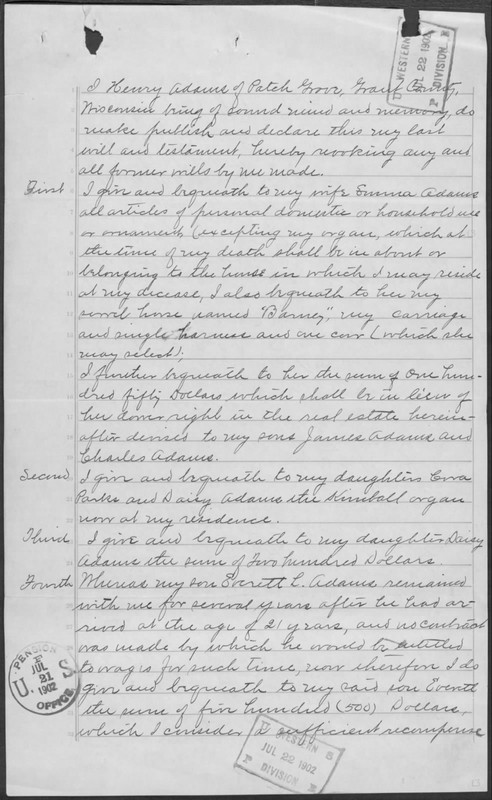 WESTERN
JUL 22 1902
DIVISION
I Henry Adams of Patch Grove, Grant County,
Wisconsin being of sound mind and memory, do
make publish and declare this my last
will and testament, hereby revoking any and
all former wills by me made.
First I give and bequeath to my wife Emma Adams
all articles of personal domestic or household use
or ornament (excepting my organ, which at
the time of my death shall be in about or
belonging to the house in which I may reside
at my decease, I also bequeath to her my
sorrel horse named "Barney", my carriage
and single harness and one cow (which she
may select);
I further bequeath to her the sum of One hun-
dred fifty Dollars which shall be in lieu of
her dower right in the real estate herein-
after devised to my sons James Adams and
Charles Adams.
Second I give and bequeath to my daughters Cora
Parks and Daisy Adams the Kimball organ
now at my residence.
Third I give and bequeath to my daughter Daisy
Adams the sum of Two hundred Dollars
Fourth Whereas my son Everett E. Adams remained
with me for several years after he had ar-
rived at the age of 21 years, and no contract
was made by which he would be entitled
to wages for such time, now therefore I do
give and bequeath to my said son Everett
the sum of five hundred (500) Dollars,
which I consider a sufficient recompense
PENSION
JUL
21
1902
U S
OFFICE
WESTERN
JUL 22 1902
DIVISION